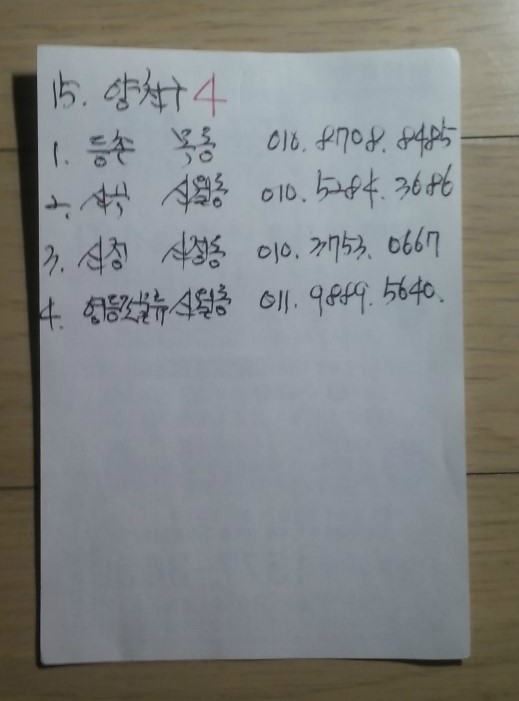 15. 양천구 4
1. 등촌 목동 010. 8708. 8485
2. 신월동 010. 5284. 3686
3. 신정 신정동 010. 3753. 0667
4. 신월동 011. 9889. 5640.